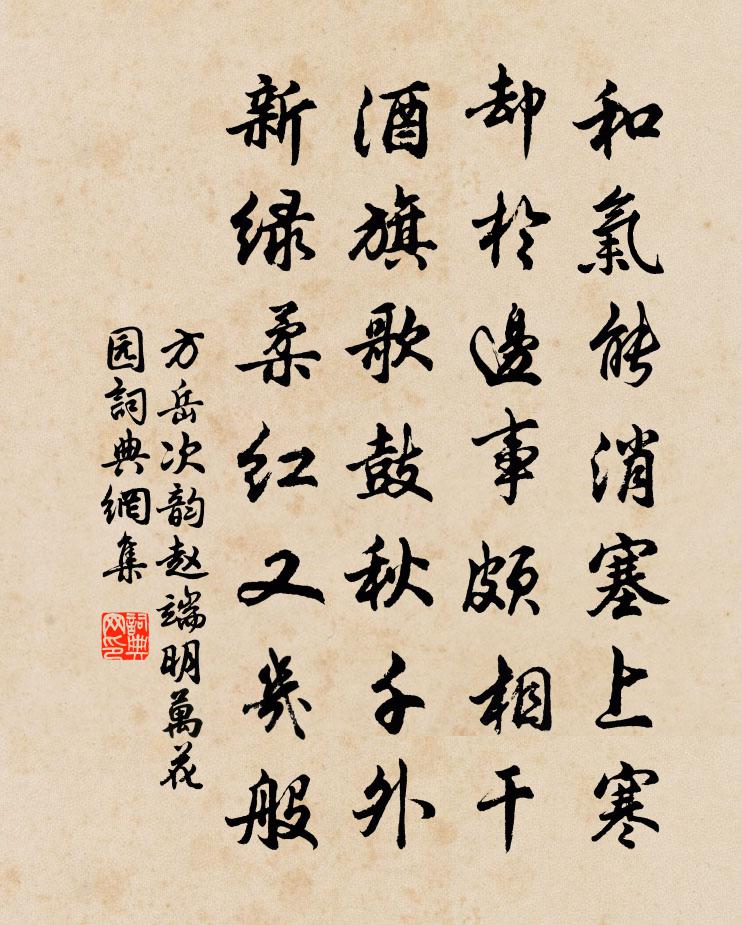 和氣能消塞上寒
却於邊事頗相干
酒旗歌鼓秋千外
新绿柔红又幾般
方岳次韵赵端明萬花
园詞典網集
詞典
网印